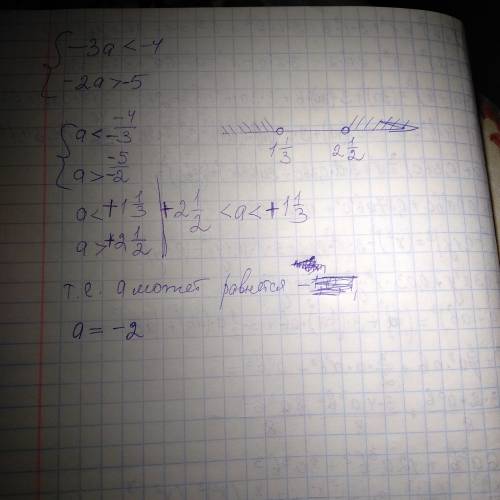 { -3a < -4
-2a > -5
{ a < -4/-3
a > -5/-2
1 1/3 2 1/2
a < +1 1/3 | +2 1/2 < a < +1 1/3
a > +2 1/2
т.е. a может равнется -
a = -2